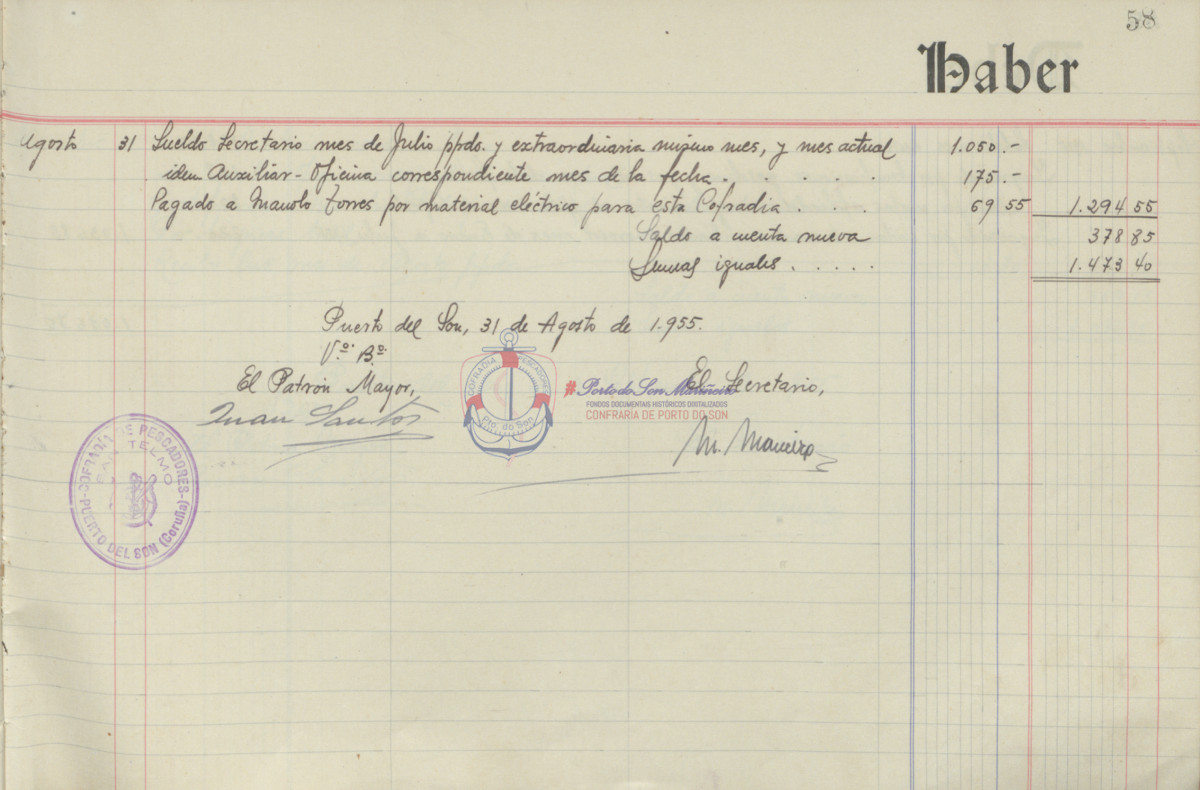 58
Haber
Agosto 31 Sueldo Secretario mes de Julio ppdo. y extraordinaria mismo mes, y mes actual 1.050.-
idem Auxiliar-Oficina correspondiente mes de la fecha . . . . . . 175.-
Pagado a Manolo Torres por material eléctrico para esta Cofradia . . . . 69 55 1.294 55
Saldo a cuenta nueva 378 85
Sumas iguales . . . . . 1.473 40
Puerto del Son, 31 de Agosto de 1.955.
Vº. Bº.
El Patrón Mayor, El Secretario,
Juan Santos
M. Maneiro
COFRADIA DE PESCADORES
SAN TELMO
PUERTO DEL SON (Coruña)
COFRADIA PESCADORES
Pto. do Son
#Porto do Son Mariñeiro
FONDOS DOCUMENTAIS HISTÓRICOS DIGITALIZADOS
CONFRARÍA DE PORTO DO SON